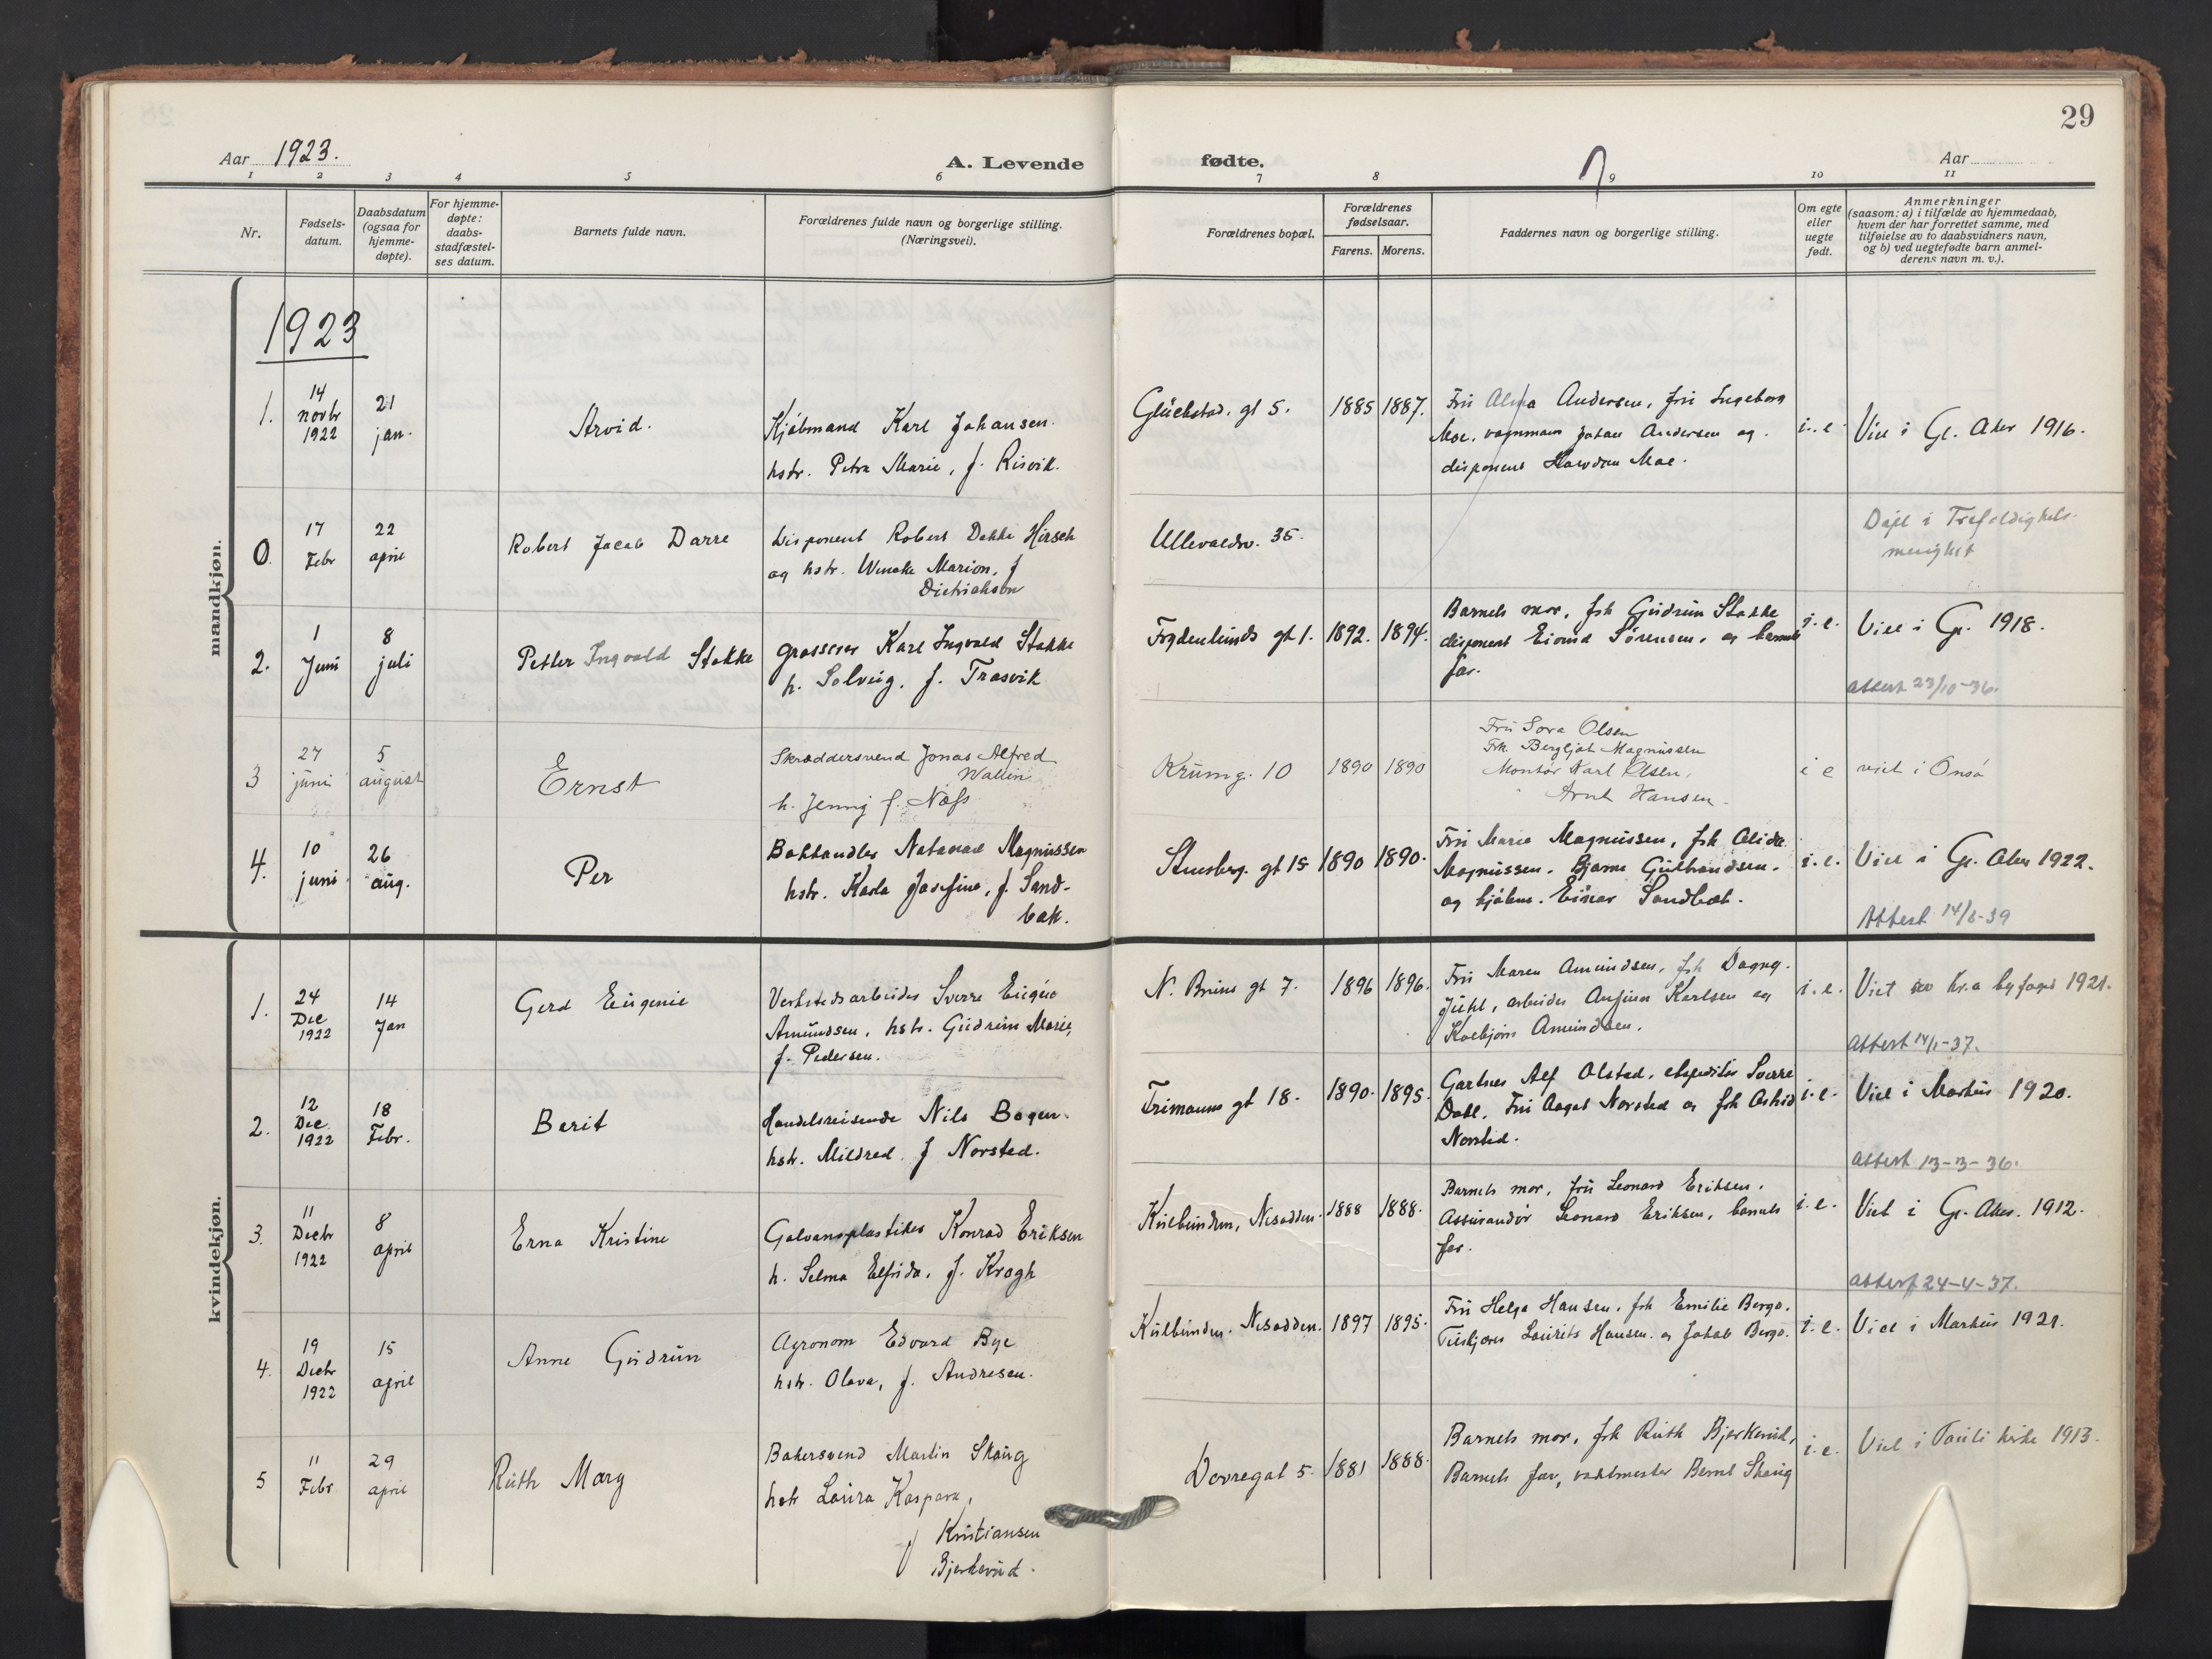 29
Aar 1923.
A. Levende
fødte.
Aar
1 2 3 4 5 6 7 8 9 10 11
Nr.
Fødsels-
datum.
Daabsdatum
(ogsaa for
hjemme-
døpte).
For hjemme-
døpte:
daabs-
stadfæstel-
ses datum.
Barnets fulde navn.
Forældrenes fulde navn og borgerlige stilling.
(Næringsvei).
Forældrenes bopæl.
Forældrenes
fødselsaar.
Farens. Morens.
Faddernes navn og borgerlige stilling.
Om egte
eller
uegte
født.
Anmerkninger
(saasom: a) i tilfælde av hjemmedaab,
hvem der har forrettet samme, med
tilføielse av to daabsvidners navn,
og b) ved uegtefødte barn anmel-
derens navn m. v.).
mandkjøn.
1923
1.
14
novbr
1922
21
jan.
Arvid.
Kjøbmand Karl Johansen.
hstr. Petra Marie, f. Risvik.
Glückstad. gt 5.
1885 1887.
Fru Andersen, fru Ingeborg
Moe. Johan Andersen og
disponent Moe.
i. e.
Viel i Gl. Aker 1916.
0.
17
Febr
22
april
Robert Jacob Darre
Disponent Robert Dekke Hirsch
og hstr. Wencke Marion, f
Dietrichson
Ullevaldsv. 35.
Døpt i Trefoldighets.
menighet
2.
1
Juni
8
juli
Petter Ingvald Stakke
Grosserer Karl Ingvald Stakke
h. Solveig. f. Trosvik
Frydenlunds gt 1.
1892. 1894.
Barnets mor, frk Gudrun Stakke
disponent Eivind Sørensen. og barnets
far.
i. e.
Viel i Gr. 1918.
attest 23/10-36.
3
27
juni
5
august
Ernst
Skræddersvend Jonas Alfred
Wallin
h. Jenny f. Næss
Krumg. 10
1890 1890
Fru Sora Olsen
Frk. Bergljot Magnussen
Montør Karl Olsen,
Arnt Hansen.
i e
viet i Onsø
4.
10
juni
26
aug.
Per
Bokhandler Natanael Magnussen
hstr. Karla Josefine, f. Sand-
bak.
Stensberg. gt 15
1890 1890.
Fru Marie Magnussen, frk Alida
Magnussen. Bjarne Gulbrandsen.
og kjøbm. Einar Sandbæk.
i. e.
Viet i Gr. Aker 1922.
Attest 14/8-39
kvindekjøn.
1.
24
Dec
1922
14
Jan
Gerd Eugenie
Verkstedsarbeider Sverre Eugen
Amundsen, hstr. Gudrun Marie,
f. Pedersen.
N. Bruns gt 7.
1896 1896.
Fru Maren Amundsen, frk Dagny
Juhl, arbeider Anfinn Karlsen og
Kolbjørn Amundsen.
i. e.
Viet av Kr.a byfoged 1921.
attest 14/1-37.
2.
12
Dec.
1922
18
Febr.
Berit
Handelsreisende Nils Bogen.
hstr. Mildred. f Norsted.
Frimanns gt 18.
1890. 1895.
Gartner Alf Olstad, ekspeditør Sverre
Dahl. Fru Aagot Norsted og frk Astrid
Norsted.
i. e.
Viel i Markus 1920.
attest 13-3-36.
3.
11
Decbr
1922
8
april
Erna Kristine
Galvanoplastiker Konrad Eriksen
h. Selma Elfrida. f. Krogh
Nesodden.
1888 1888.
Barnets mor, fru Leonard Eriksen.
Assurandør Leonard Eriksen, barnets
far.
i. e.
Viet i Gr. Aker. 1912.
attest 24-4-37.
4.
19
Decbr
1922
15
april
Anne Gudrun
Agronom Edvard Bye
hstr. Olava, f. Andresen.
Nesodden.
1897 1895.
Fru Helga Hansen. frk Emilie Bergo.
Laurits Hansen. og Jakob Bergo.
i. e.
Viet i Markus 1921.
5
11
Febr.
29
april
Ruth Mary
Bakersvend Martin Skaug
hstr Laura Kaspara,
f Kristiansen
Bjerkerud.
Dovregat 5.
1881 1888.
Barnets mor, frk Ruth Bjerkerud,
Barnets far, vaktmester Bernt Skaug
i. e.
Viet i Pauli kirke 1913.